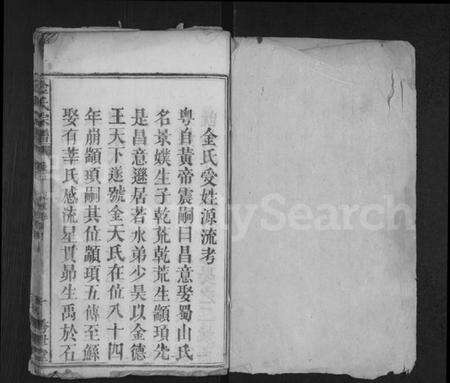 金氏受姓源流考
粤自黃帝震嗣曰昌意娶蜀山氏
名景媄生子乾荒乾荒生顓頊先
是昌意遜居若水弟少昊以金德
王天下遂號金天氏在位八十四
年崩顓頊嗣其位顓頊五傳至鯀
娶有莘氏感流星貫昴生禹於石